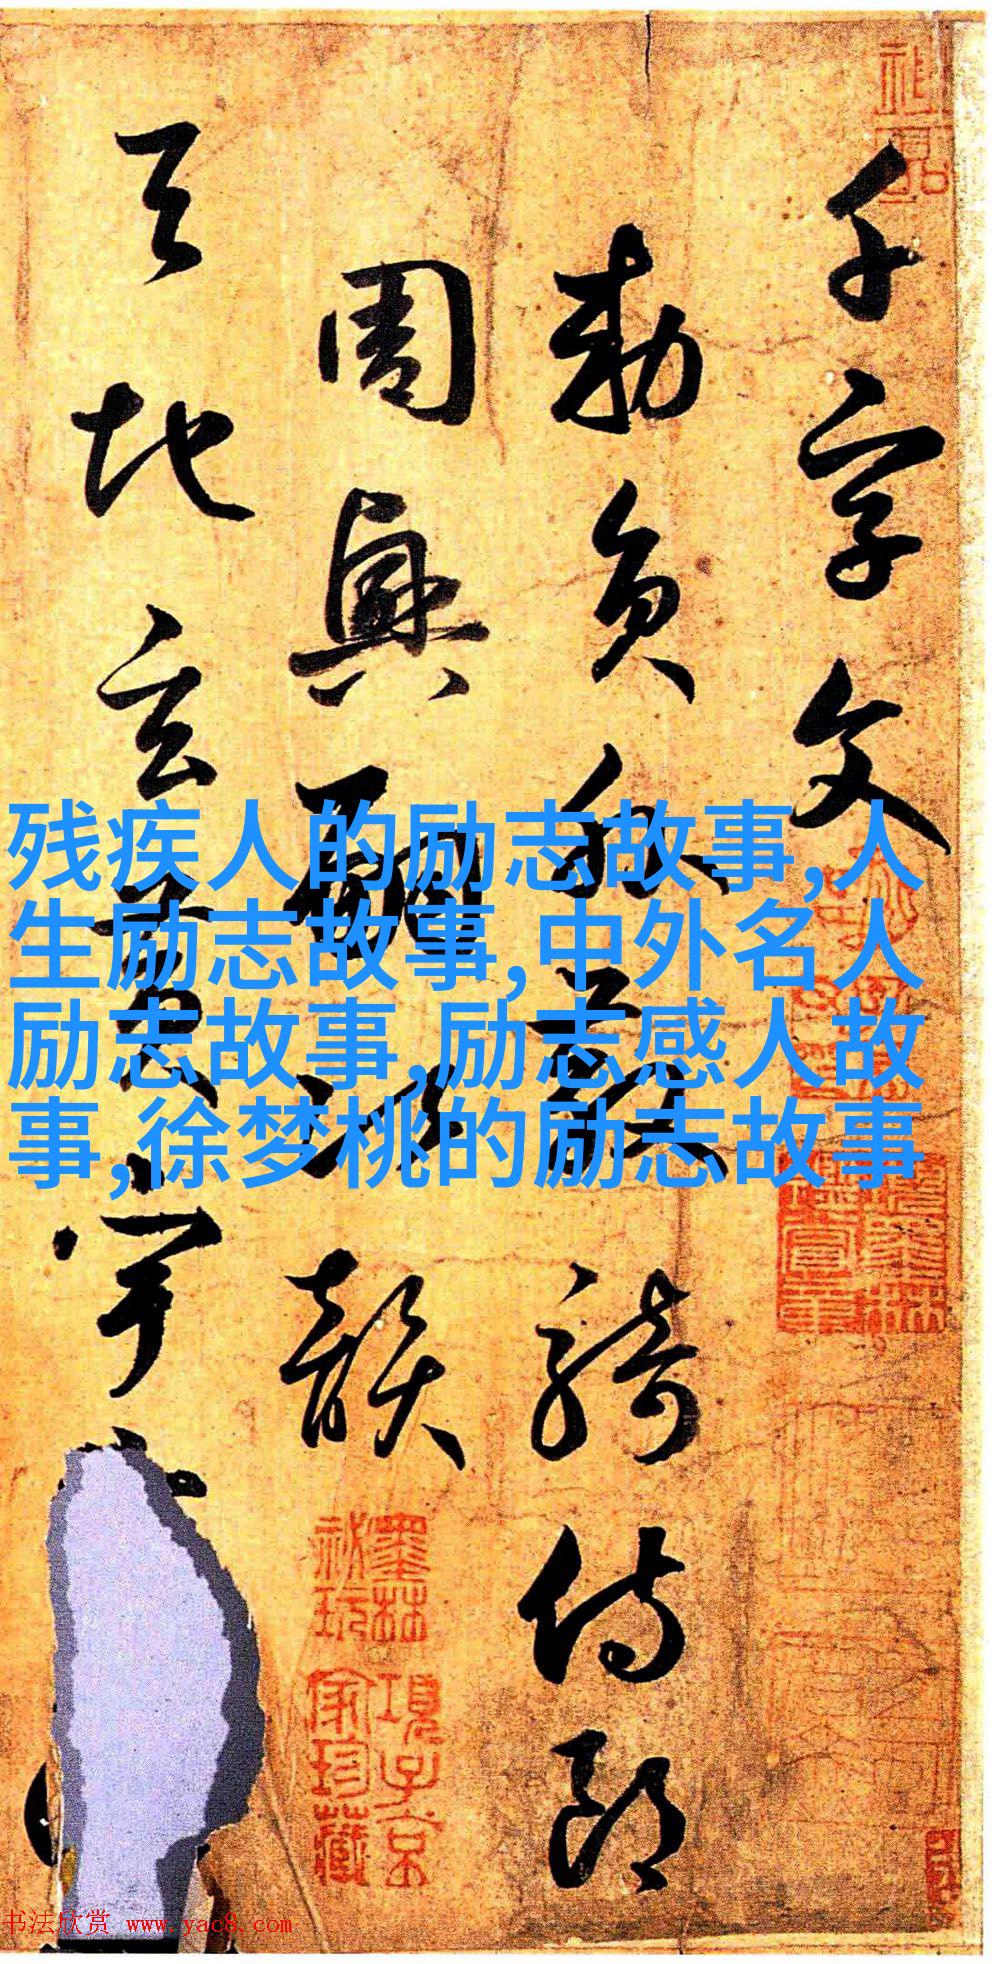 千字文
勅員外散騎侍郎
周興嗣次韻
天地玄黄宇
残疾人的励志故事,人
生励志故事,中外名人
励志故事,励志感人故
事,徐梦桃的励志故事
墨林秘玩
項子京家珍藏
书法欣赏 www.yac8.com